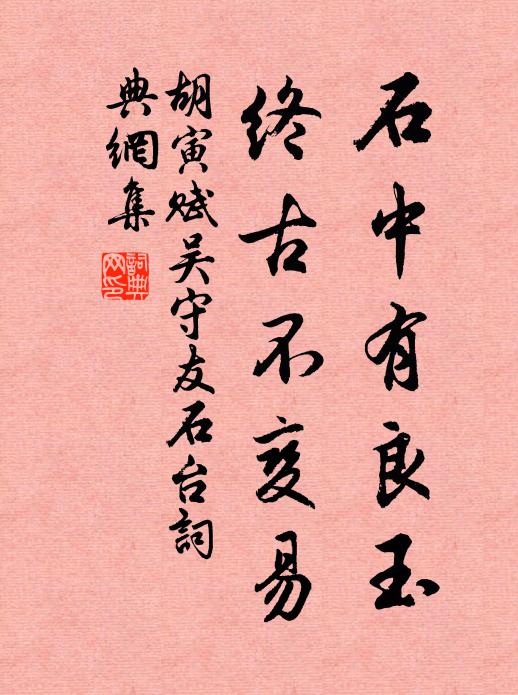 石中有良玉
终古不变易
胡寅赋吴守友石台詞
典網集
詞典
网印